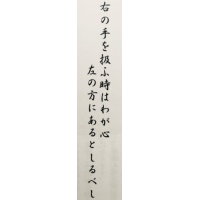 右の手を扱ふ時はわが心
左の方にあるとしるべし